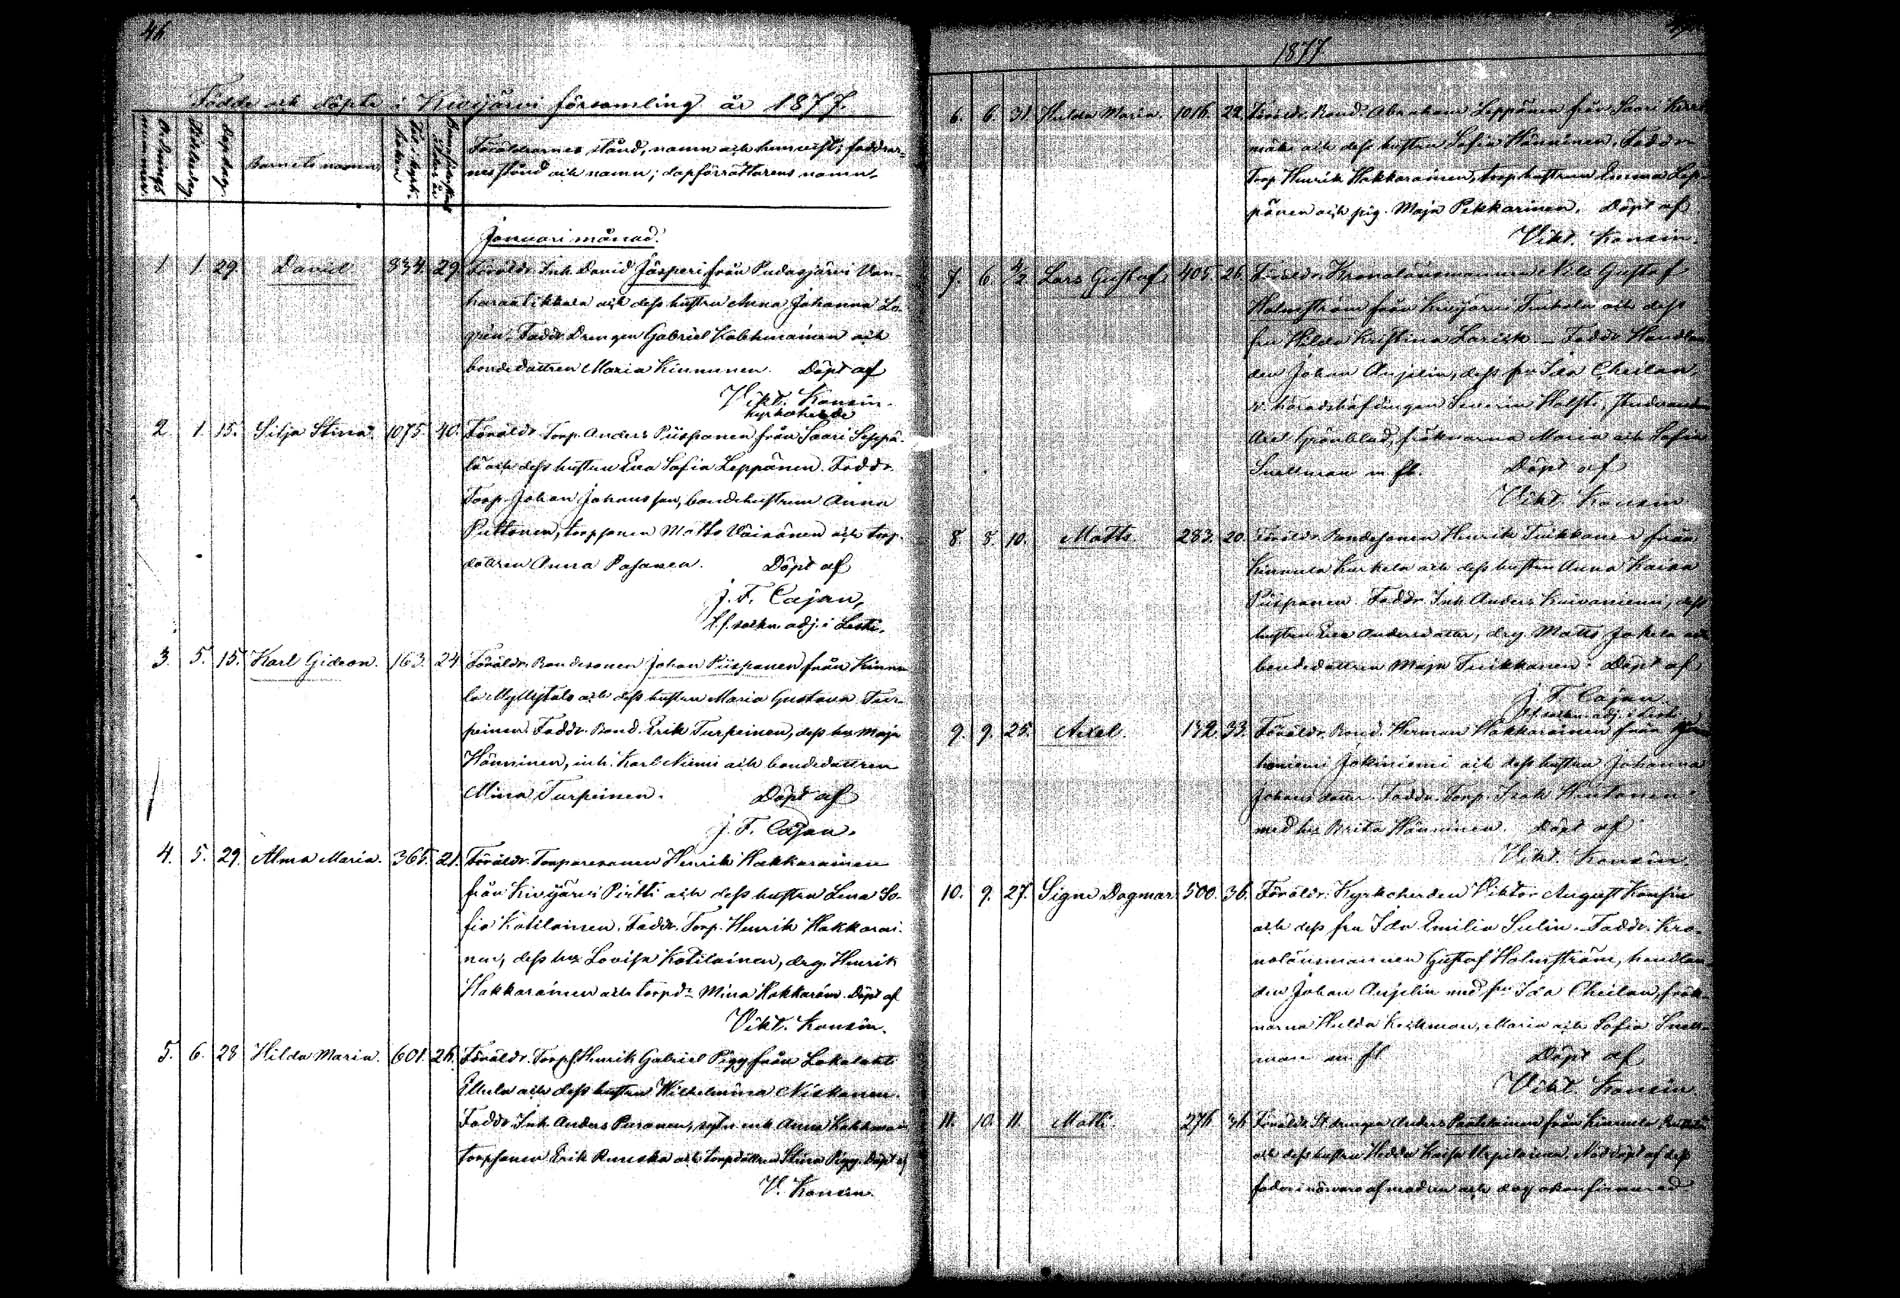 46
Födde och döpte i Kivijärvi församling år 1877.
Ordnings nummer.
Födelsedag.
Dop dag.
Barnets namn,
Föräldrarnes stånd, namn och hemvist; faddrar-
nes stånd och namn; dopförrättarens namn.
Januari månad.
1 1 29. David 334. 29. Föräldr. Inh. David Jäsperi från Pudasjärvi
och dess hustru Anna Johanna
Faddr. Drengen Gabriel Kabhmainen och
bondedottren Maria Kinnunen. Döpt af
Vikt. Konsin.
kyrkoherde
2. 1. 15. Silja Stina. 1075. 40. Föräldr. Torp. Anders Piispanen från Saari Seppä-
lä och dess hustru Eva Sofia Leppänen. Faddr.
Torp. Johan Johansson, bondehustrun Anna
Puttonen, torpsonen Matts Väisänen och torp.
dottren Anna Pasanen. Döpt af
J. F. Cajan,
sockn. adj. i Lesti.
3. 5. 15. Karl Gideon. 163. 24 Föräldr. Bondesonen Johan Piispanen från Kinnu-
la Myllytalo och dess hustru Maria Gustava Tur-
peinen. Faddr. Bond. Erik Turpeinen, dess hu Maja
Hänninen, inh. Karl Niemi och bondedottren
Mina Turpeinen. Döpt af
J. F. Cajan.
4. 5. 29. Alma Maria. 365. 21. Föräldr. Torparesonen Henrik Hakkarainen
från Kivijärvi Piritti och dess hustru Lena So-
fia Kotilainen. Faddr. Torp. Henrik Hakkarai-
nen, dess hu Lovisa Kotilainen, drg. Henrik
Hakkarainen och torpdr Mina Hakkarain. Döpt af
Vikt. Konsin.
5. 6. 28 Hilda Maria. 601. 26. Föräldr. Torp. Henrik Gabriel Pigg från Lokalaks
Ellula och dess hustru Wilhelmina Niskanen.
Faddr. Inh. Anders Puranen, inh. Anna
torpsonen Erik Runeska och torpdottren Stina Pigg. Döpt af
V. Konsin.
1877
6. 6. 31 Hilda Maria. 1016. 22. Föräldr. Bond. Abraham Leppänen från Saari
mäki och dess hustru Sofia Hänninen. Faddr.
Torp. Henrik Hakkarainen, torp.hustrun Emma Lep-
pänen och pig. Maja Pekkarinen. Döpt af
Vikt. Konsin.
7. 6. 4/2 Lars Gustaf. 405. 26. Föräldr. Kronolänsmannen Nils Gustaf
Holmström från Kivijärvi Tiukola och dess
fru Hilda Kristina Zarisk. Faddr. Handlan-
den Johan Anjelin, dess fru Ida Cheilan,
v. häradshöfdingen Severin Holsti, studeranden
Axel Grönblad, fröknarna Maria och Sofia
Snellman m. fl. Döpt af
Vikt. Konsin
8. 8. 10. Matts. 283. 20. Föräldr. Bondesonen Henrik Tiikkanen från
Kinnula Kurkela och dess hustru Anna Kaisa
Piispanen. Faddr. Inh. Anders Kuivaniemi, dess
hustru Eva Andersdotter, drg. Matts Jokela och
bondedottren Maja Tiikkanen. Döpt af
J. F. Cajan
9. 9. 25. Axel. 132. 33. Föräldr. Bond. Herman Hakkarainen från
Jokiniemi och dess hustru Johanna
Johansdotter. Faddr. Torp. Isak Hintonen
med hu Brita Hänninen. Döpt af
Vikt. Konsin
10. 9. 27. Signe Dagmar. 500. 36. Föräldr. Kyrkoherden Viktor August Konsin
och dess fru Ida Emilia Sulin. Faddr. Kro-
nolänsmannen Gustaf Holmström, handlan-
den Johan Anjelin med fru Ida Cheilan, frök-
narna Hulda Krikman, Maria och Sofia Snell-
man m. fl Döpt af
Vikt. Konsin.
11. 10. 11. Matti. 276 36 Föräldr. St. drengen Anders från Kinnula
och dess hustru Hedda Kaisa Urpilainen. Nöddöpt af dess
fader i närvaro af modren och